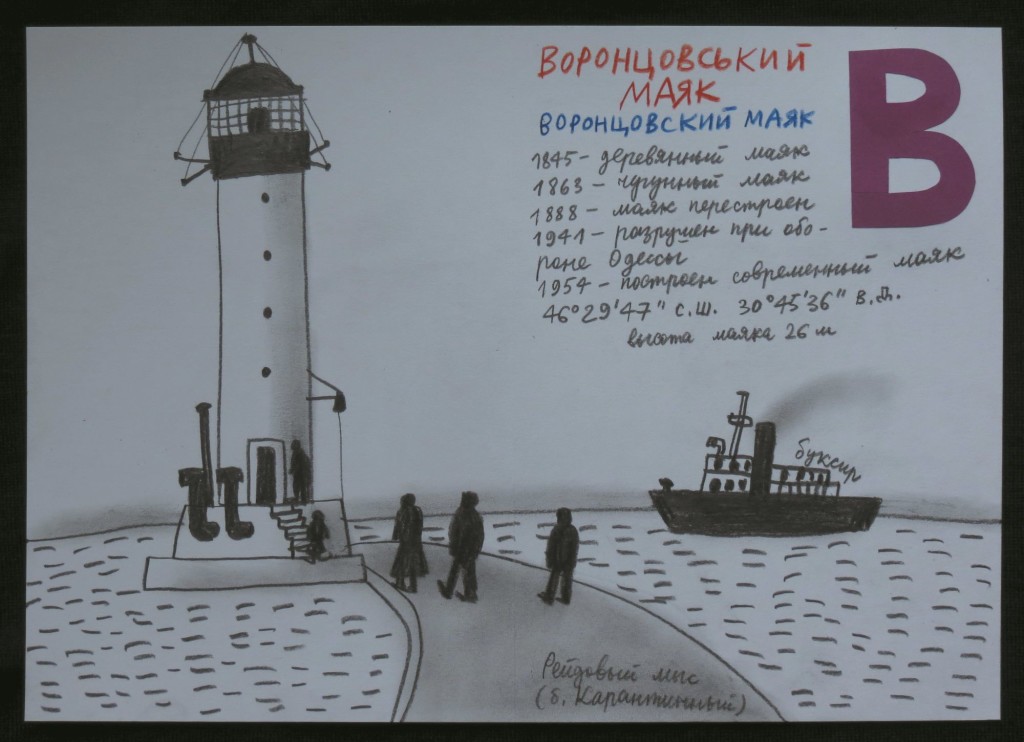 ВОРОНЦОВСЬКИЙ
МАЯК
В
ВОРОНЦОВСКИЙ МАЯК
1845 - деревянный маяк
1863 - чугунный маяк
1888 - маяк перестроен
1941 - разрушен при обо-
роне Одессы
1954 - построен современный маяк
46°29'47" с.ш. 30°45'36" в.д.
высота маяка 26 м
буксир
Рейдовый мыс
(б. Карантинный)